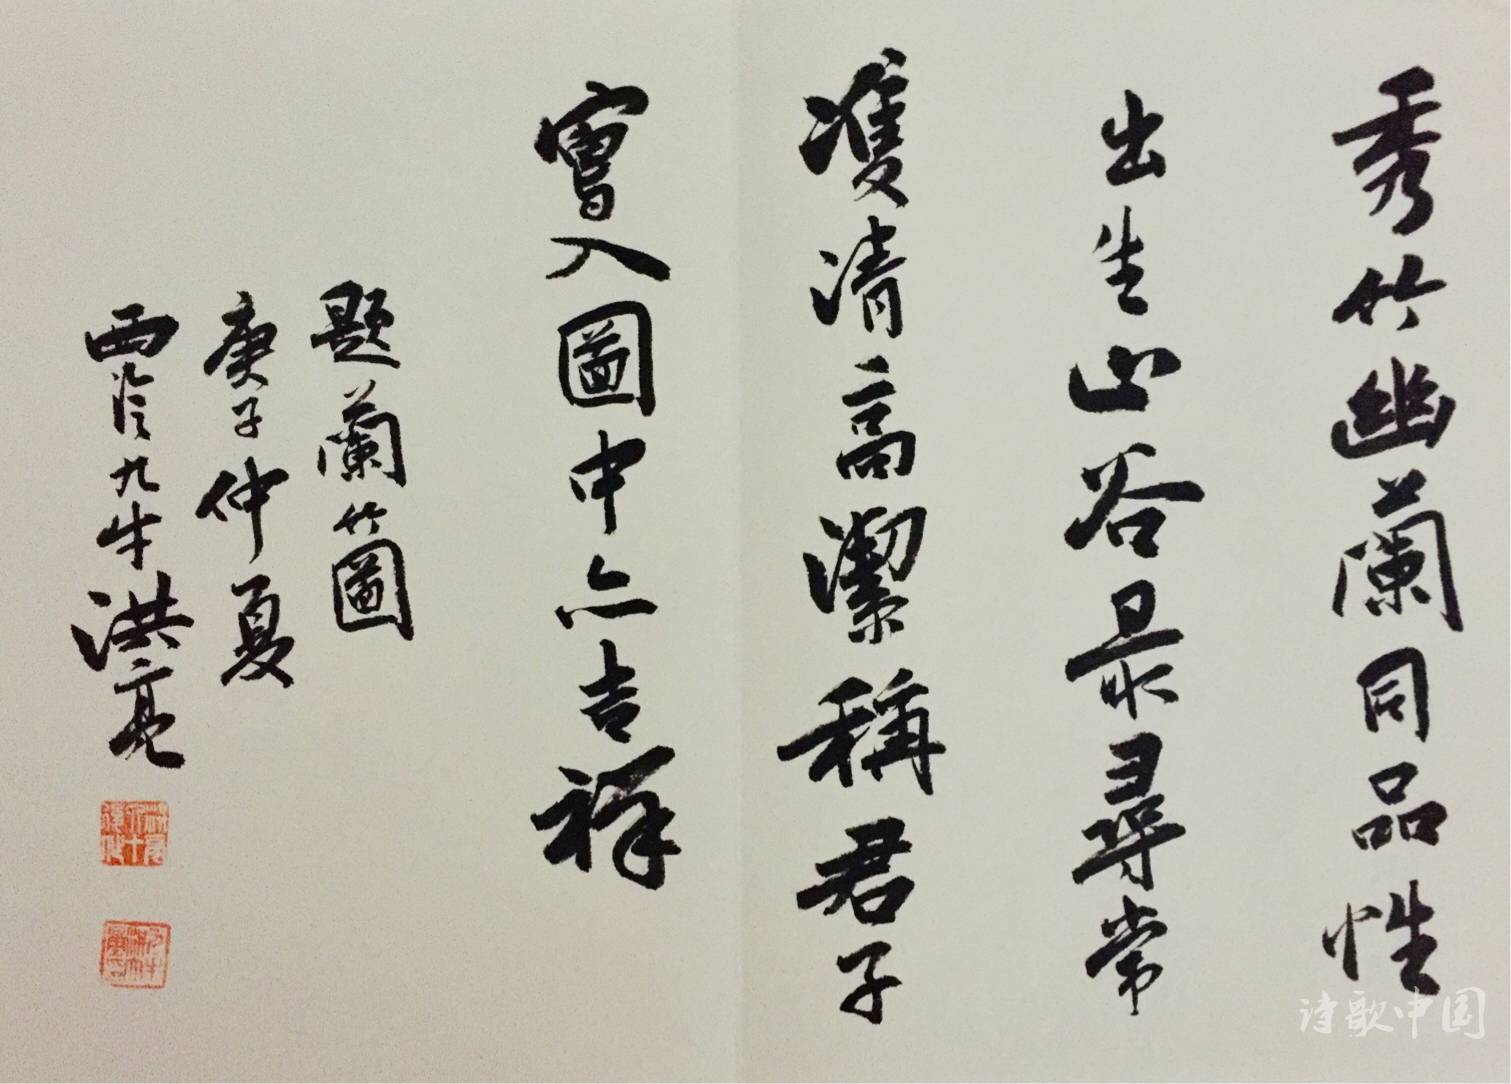 秀竹幽蘭同品性
出生山谷最尋常
雙清高潔稱君子
入圖中亦吉祥
題蘭竹圖
庚子仲夏
西泠九牛洪亮
诗歌中国